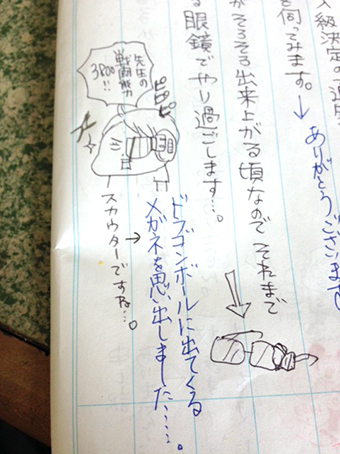 級決定の
を伺ってみます。→ありがとうございます
がそろそろ出来上がる頃なのでそれまで
る眼鏡でやり過ごします…。
ドラゴンボールに出てくる
メガネを思い出しました……。
→スカウターですね…。
先生の
戦闘能力
3800!!
ピピピ